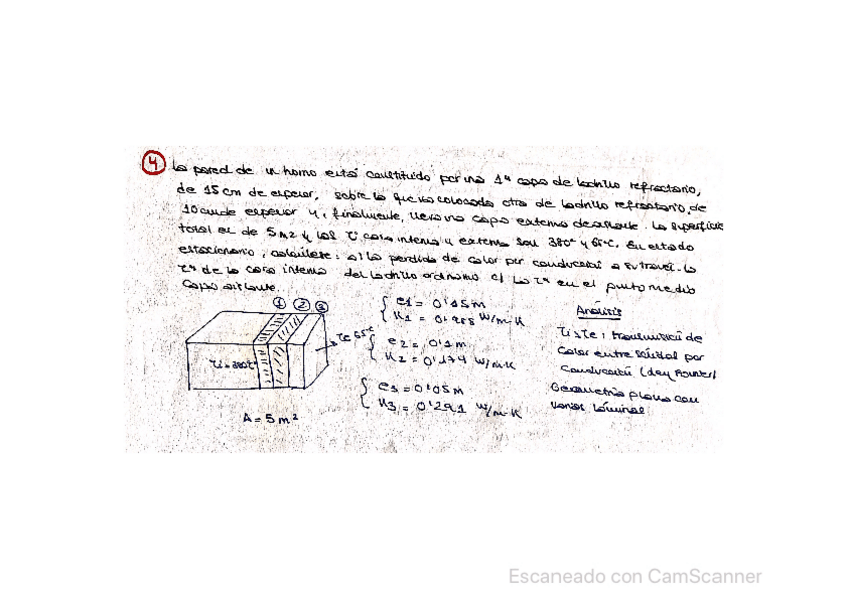 4 La pared de un horno está constituida por una 1ª capa de ladrillo refractario,
de 15 cm de espesor, sobre la que va colocada otra de ladrillo refractario, de
10 cm de espesor y, finalmente, lleva una capa externa de aislante. La superficie
total es de 5 m2 y las Tª cara interna y externa son 380° y 65°C. En estado
estacionario, calcúlese: a) la perdida de calor por conducción a su través. La
Tª de la cara interna del ladrillo ordinario c) La Tª en el punto medio
capa aislante.
① ② ③
Ti=380°C
Te 65°C
A = 5 m²
e1 = 0'15 m
K1 = W/m·K
e2 = 0,1 m
K2 = 0'174 W/m·K
e3 = 0'05 m
K3 = 0'291 W/m·K
Análisis
transmisión de
calor entre por
conducción (
Geometría plana con
varias láminas
Escaneado con CamScanner